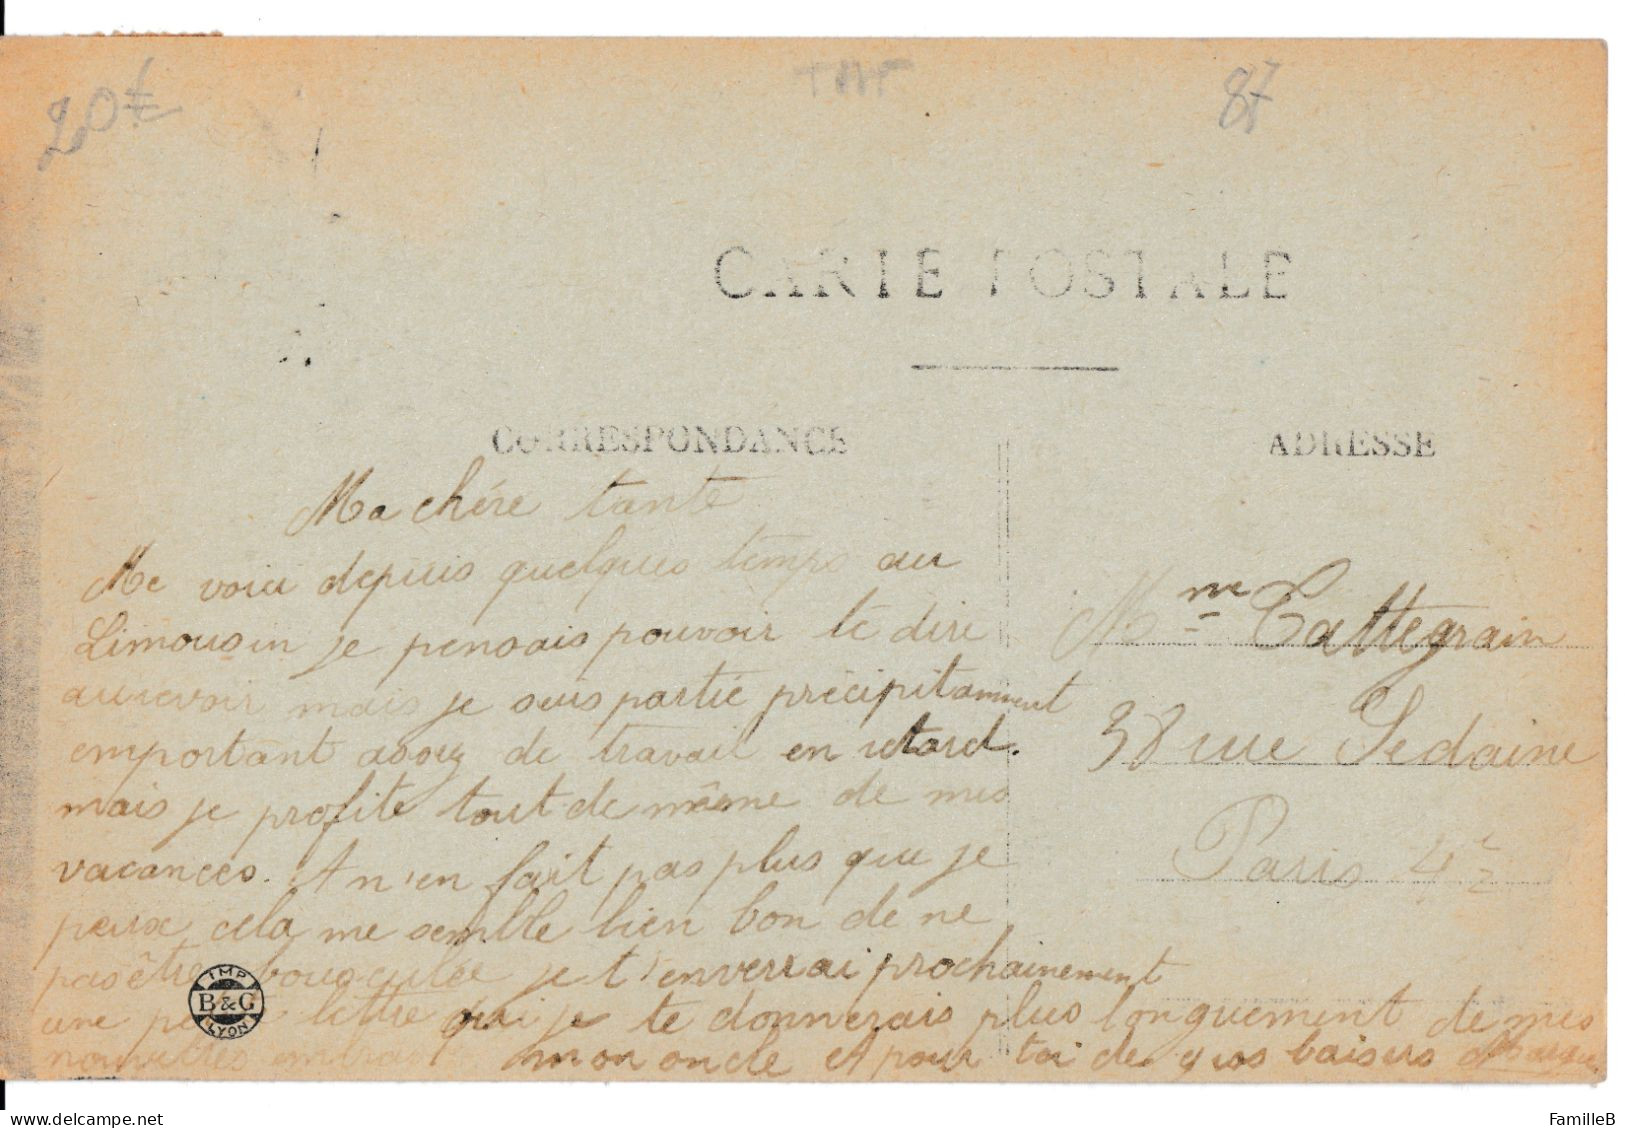 20€
87
CARTE POSTALE
CORRESPONDANCE
ADRESSE
Ma chére tante
Me voici depuis quelques temps au
Limousin je pensais pouvoir te dire
aurevoir mais je suis partie précipitamment
emportant assez de travail en retard.
mais je profite tout de même de mes
vacances. Je n'en fait pas plus que je
peux cela me semble bien bon de ne
pas être bousculée je t'enverrai prochainement
une lettre où je te donnerais plus longuement de mes
nouvelles mon oncle et pour toi de gros baisers
Mme Cattegrain
38 rue Sedaine
Paris
IMP
B&G
LYON
delcampe.net
FamilleB